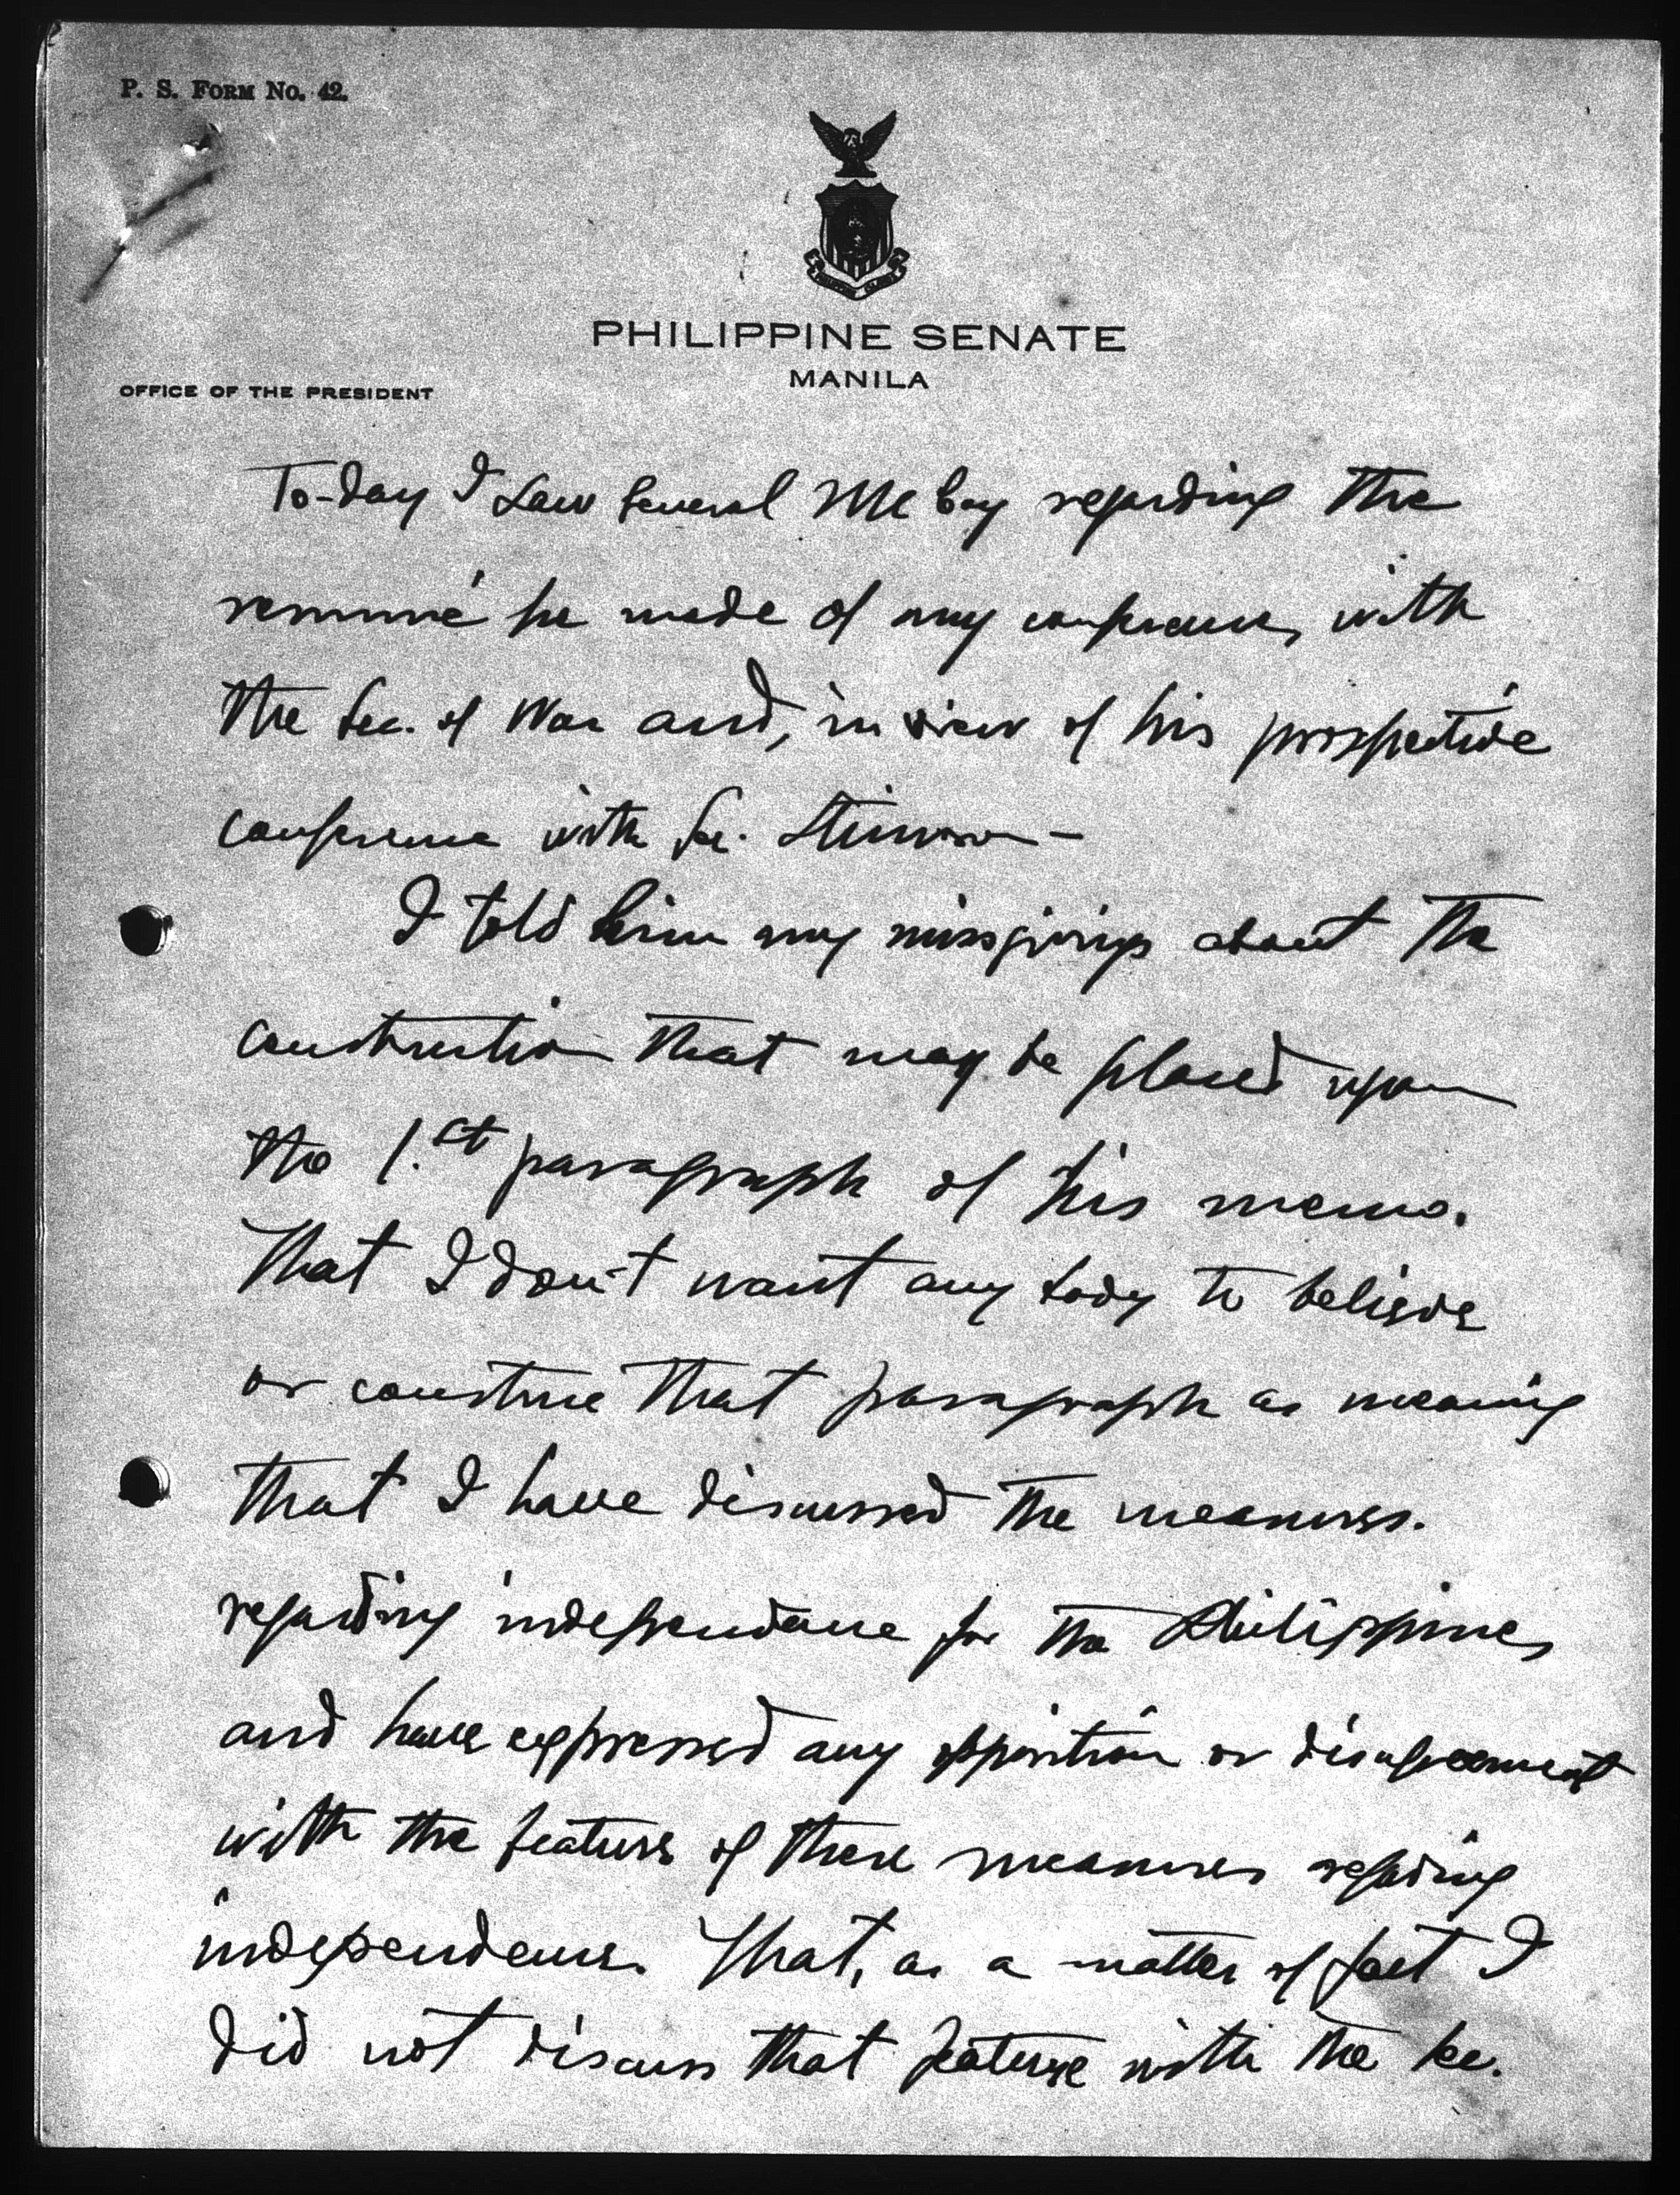 P. S. FORM No. 42.
PHILIPPINE SENATE
MANILA
OFFICE OF THE PRESIDENT
To-day I saw General McCoy regarding the
resumé he made of my conferences with
the Sec. of War and, in view of his prospective
conference with Sec. Stimson —
I told him my missgivings about the
construction that may be placed upon
the 1.st paragraph of his memo.
That I don't want any body to believe
or construe that paragraph as meaning
that I have discussed the measures.
regarding independence for the Philippines
and have expressed any opposition or disagreement
with the feature of these measures regarding
independence. That, as a matter of fact I
did not discuss that feature with the Sec.